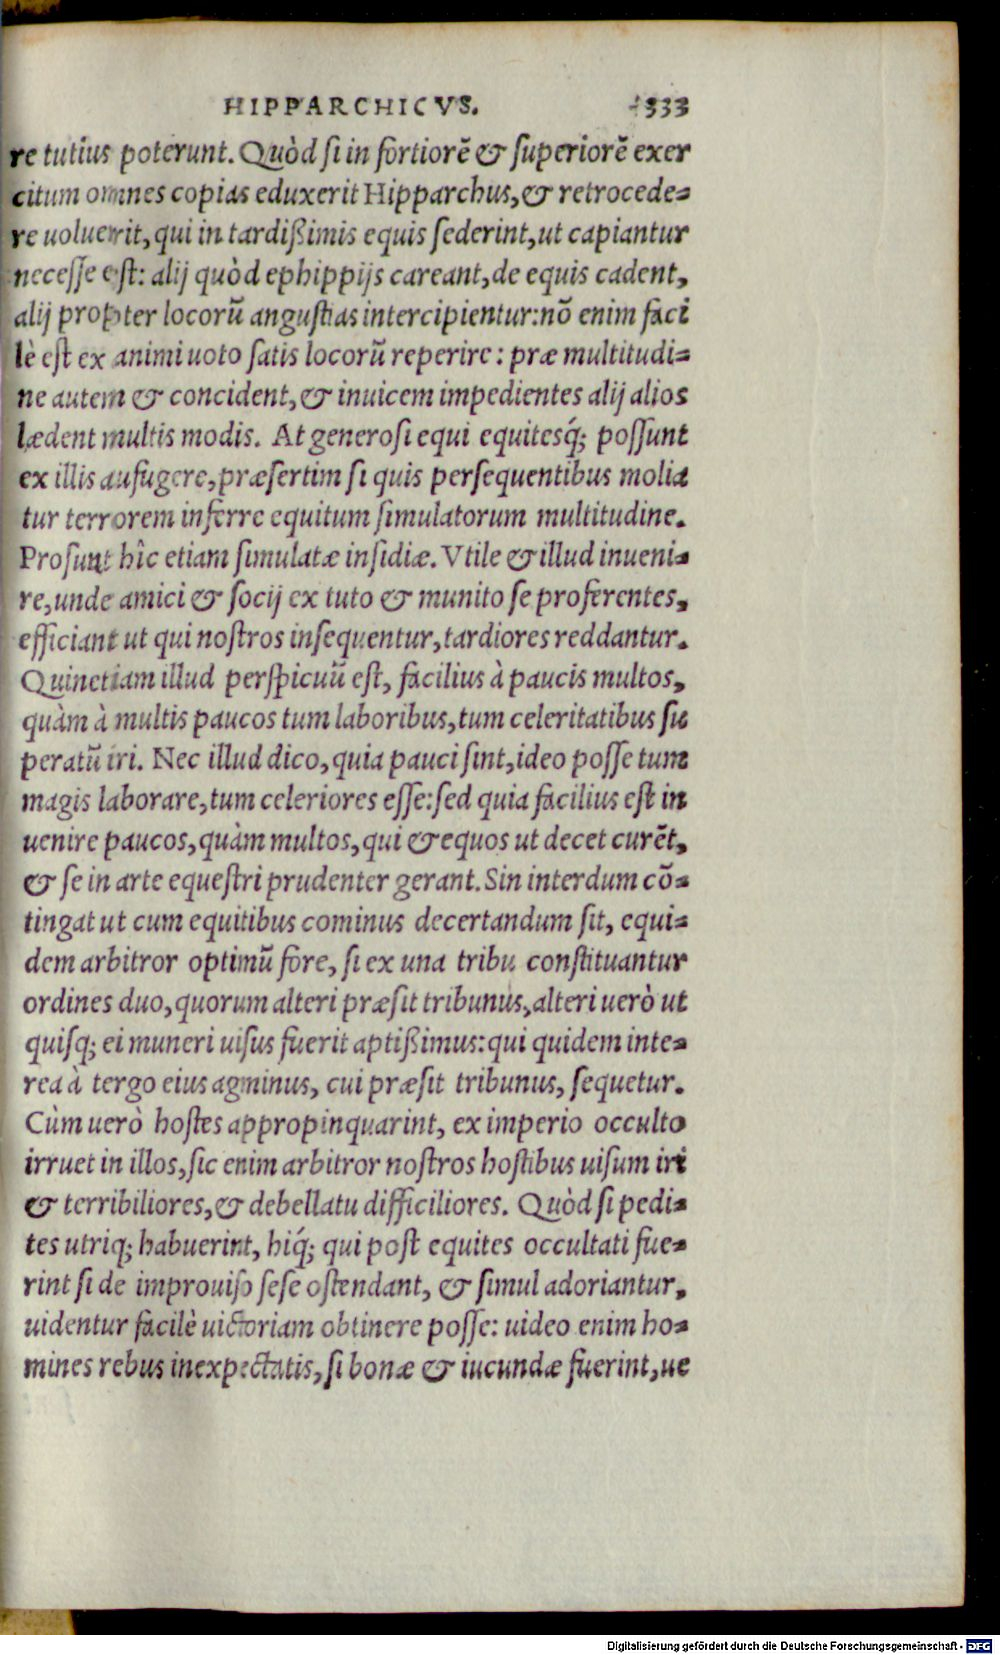 HIPPARCHICVS. 333
re tutius poterunt. Quòd ſi in fortiorē & ſuperiorē exer
citum omnes copias eduxerit Hipparchus, & retrocede-
re uoluerit, qui in tardißimis equis ſederint, ut capiantur
neceſſe eſt: alij quòd ephippijs careant, de equis cadent,
alij propter locorū anguſtias intercipientur: nō enim faci
lè eſt ex animi uoto ſatis locorū reperire: præ multitudi-
ne autem & concident, & inuicem impedientes alij alios
lædent multis modis. At generoſi equi equitesq́; poſſunt
ex illis aufugere, præſertim ſi quis perſequentibus molia
tur terrorem inferre equitum ſimulatorum multitudine.
Proſunt hîc etiam ſimulatæ inſidiæ. Vtile & illud inueni-
re, unde amici & ſocij ex tuto & munito ſe proferentes,
efficiant ut qui noſtros inſequentur, tardiores reddantur.
Quinetiam illud perſpicuū eſt, facilius à paucis multos,
quàm à multis paucos tum laboribus, tum celeritatibus ſu
peratū iri. Nec illud dico, quia pauci ſint, ideo poſſe tum
magis laborare, tum celeriores eſſe: ſed quia facilius eſt in
uenire paucos, quàm multos, qui & equos ut decet curēt,
& ſe in arte equeſtri prudenter gerant. Sin interdum cō-
tingat ut cum equitibus cominus decertandum ſit, equi-
dem arbitror optimū fore, ſi ex una tribu conſtituantur
ordines duo, quorum alteri præſit tribunus, alteri uerò ut
quiſq; ei muneri uiſus fuerit aptißimus: qui quidem inte-
rea à tergo eius agminus, cui præſit tribunus, ſequetur.
Cùm uerò hoſtes appropinquarint, ex imperio occulto
irruet in illos, ſic enim arbitror noſtros hoſtibus uiſum iri
& terribiliores, & debellatu difficiliores. Quòd ſi pedi-
tes utriq; habuerint, hiq́; qui poſt equites occultati fue-
rint ſi de improuiſo ſeſe oſtendant, & ſimul adoriantur,
uidentur facilè uictoriam obtinere poſſe: uideo enim ho-
mines rebus inexpectatis, ſi bonæ & iucundæ fuerint, ue
Digitalisierung gefördert durch die Deutsche Forschungsgemeinschaft - DFG